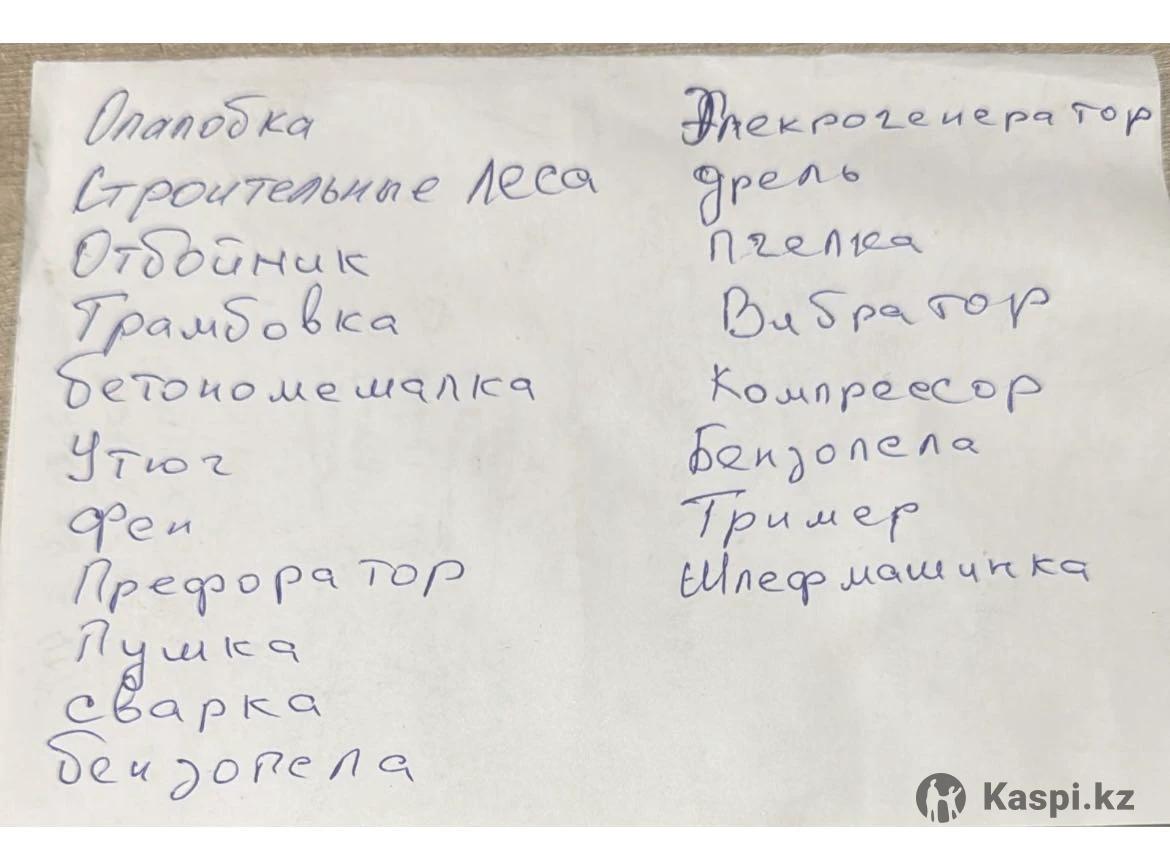 Опалобка
Строительные леса
Отбойник
Трамбовка
бетономешалка
Утюг
Фен
Префоратор
Пушка
сварка
бензопела
Элекрогенератор
дрель
пчелка
Вибратор
Компрессор
Бензопела
Тример
Шлефмашинка
Kaspi.kz